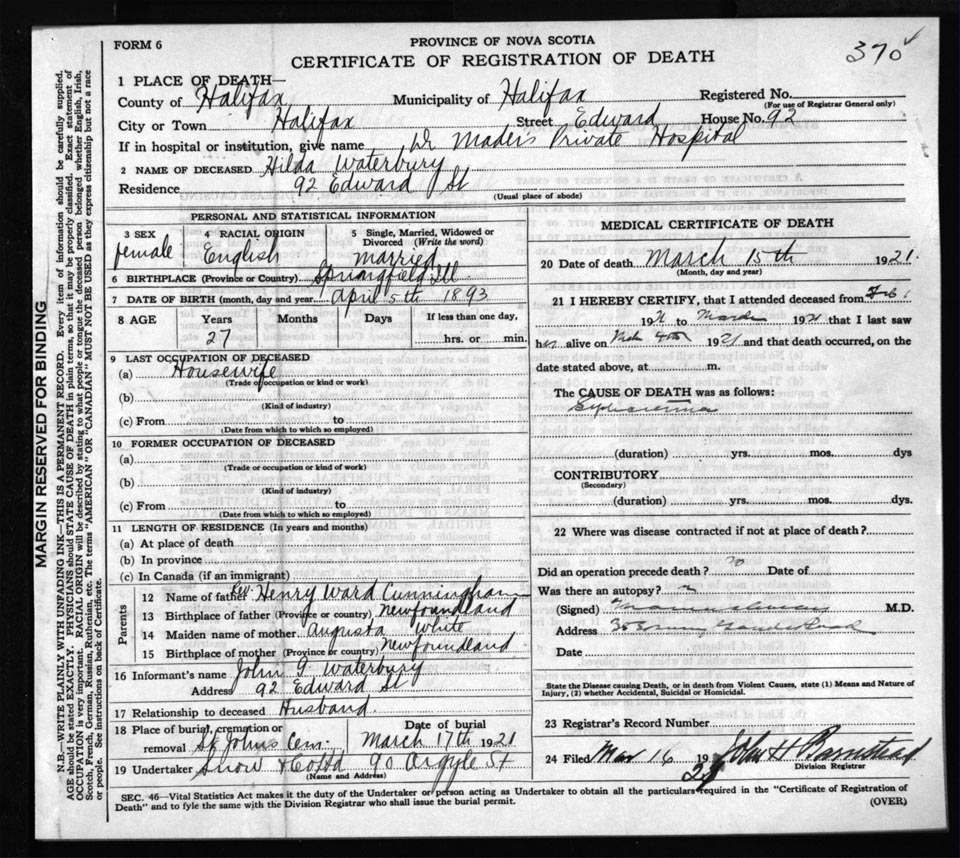 FORM 6
PROVINCE OF NOVA SCOTIA
CERTIFICATE OF REGISTRATION OF DEATH
370
1 PLACE OF DEATH—
County of Halifax Municipality of Halifax Registered No.
(For use of Registrar General only)
City or Town Halifax Street Edward House No. 92
If in hospital or institution, give name Dr Mader's Private Hospital
2 NAME OF DECEASED Hilda Waterbury
Residence 92 Edward St
(Usual place of abode)
PERSONAL AND STATISTICAL INFORMATION
3 SEX female
4 RACIAL ORIGIN English
5 Single, Married, Widowed or Divorced (Write the word) married
6 BIRTHPLACE (Province or Country) Springfield Ill
7 DATE OF BIRTH (month, day and year) April 5th 1893
8 AGE Years Months Days If less than one day,
27 hrs. or min.
9 LAST OCCUPATION OF DECEASED
(a) Housewife
(Trade or occupation or kind or work)
(b)
(Kind of industry)
(c) From to
(Date from which to which so employed)
10 FORMER OCCUPATION OF DECEASED
(a)
(Trade or occupation or kind of work)
(b)
(Kind of industry)
(c) From to
(Date from which to which so employed)
11 LENGTH OF RESIDENCE (In years and months)
(a) At place of death
(b) In province
(c) In Canada (if an immigrant)
Parents
12 Name of father Henry Ward Cunningham
13 Birthplace of father (Province or country) Newfoundland
14 Maiden name of mother Augusta White
15 Birthplace of mother (Province or country) Newfoundland
16 Informant's name John G Waterbury
Address 92 Edward St
17 Relationship to deceased Husband
18 Place of burial, cremation or removal St John's Cem. Date of burial March 17th 1921
19 Undertaker Snow & Co Ltd 90 Argyle St
(Name and Address)
MEDICAL CERTIFICATE OF DEATH
20 Date of death March 15th 1921.
(Month, day and year)
21 I HEREBY CERTIFY, that I attended deceased from Feb
1921 to March 1921 that I last saw
her alive on 1921 and that death occurred, on the
date stated above, at m.
The CAUSE OF DEATH was as follows:
(duration) yrs. mos. dys
CONTRIBUTORY
(Secondary)
(duration) yrs. mos. dys.
22 Where was disease contracted if not at place of death?
Did an operation precede death? no Date of
Was there an autopsy?
(Signed) M.D.
Address
Date
State the Disease causing Death, or in death from Violent Causes, state (1) Means and Nature of
Injury, (2) whether Accidental, Suicidal or Homicidal.
23 Registrar's Record Number
24 Filed Mar 16 1921 John H Barnstead
Division Registrar
SEC. 46—Vital Statistics Act makes it the duty of the Undertaker or person acting as Undertaker to obtain all the particulars required in the "Certificate of Registration of
Death" and to fyle the same with the Division Registrar who shall issue the burial permit.
(OVER)
MARGIN RESERVED FOR BINDING
N.B.—WRITE PLAINLY WITH UNFADING INK—THIS IS A PERMANENT RECORD. Every item of information should be carefully supplied.
AGE should be stated EXACTLY. PHYSICIANS should STATE CAUSE OF DEATH in plain terms, so that it may be properly classified. Exact statement of
OCCUPATION is very important. RACIAL ORIGIN will be described by stating to what people or tongue the deceased person belonged whether English, Irish,
Scotch, French, German, Russian, Ruthenian, etc. The terms "AMERICAN" or "CANADIAN" MUST NOT BE USED as they express citizenship but not a race
or people. See instructions on back of Certificate.